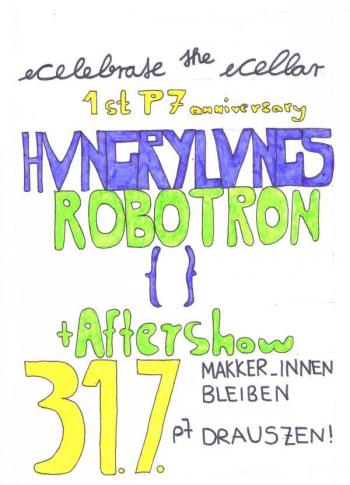 celebrate the cellar
1st P7 anniversary
HVNGRYLVNGS
ROBOTRON
{ }
+ Aftershow
31.7.
MAKKER_INNEN
BLEIBEN
P7 DRAUSZEN!